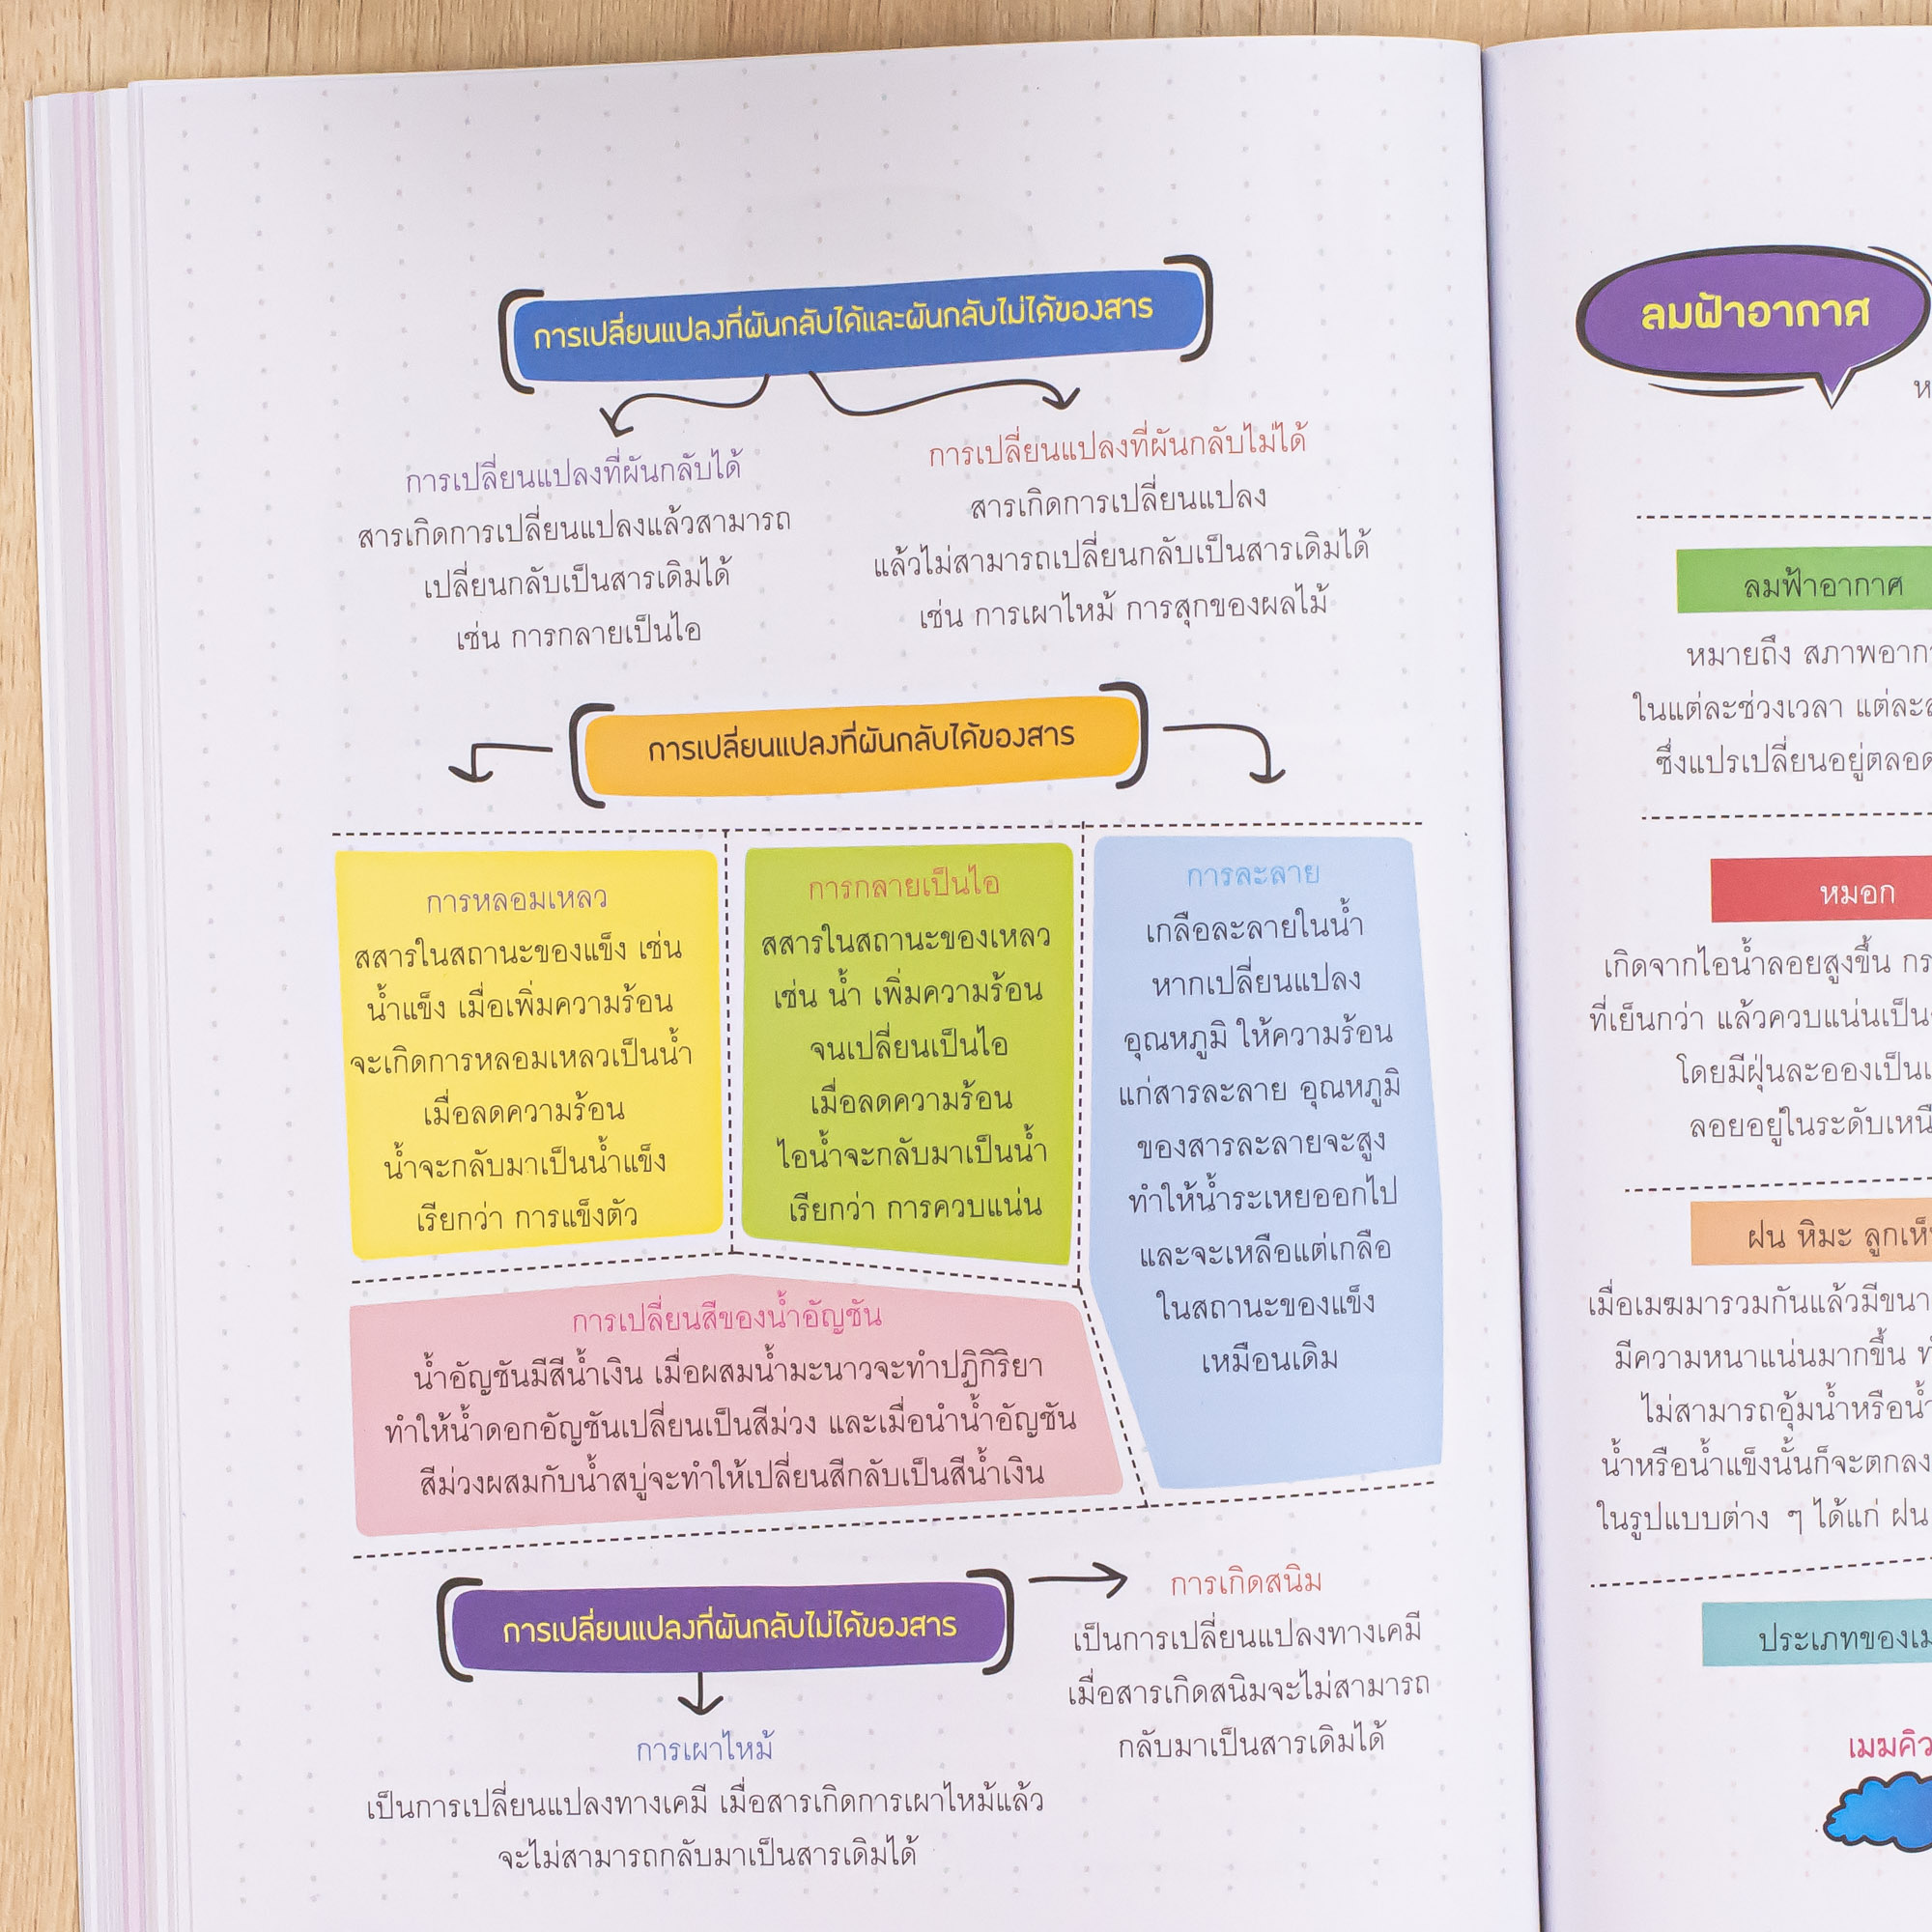 การเปลี่ยนแปลงที่ผันกลับได้และผันกลับไม่ได้ของสาร
การเปลี่ยนแปลงที่ผันกลับได้
สารเกิดการเปลี่ยนแปลงแล้วสามารถ
เปลี่ยนกลับเป็นสารเดิมได้
เช่น การกลายเป็นไอ
การเปลี่ยนแปลงที่ผันกลับไม่ได้
สารเกิดการเปลี่ยนแปลง
แล้วไม่สามารถเปลี่ยนกลับเป็นสารเดิมได้
เช่น การเผาไหม้ การสุกของผลไม้
การเปลี่ยนแปลงที่ผันกลับได้ของสาร
การหลอมเหลว
สสารในสถานะของแข็ง เช่น
น้ำแข็ง เมื่อเพิ่มความร้อน
จะเกิดการหลอมเหลวเป็นน้ำ
เมื่อลดความร้อน
น้ำจะกลับมาเป็นน้ำแข็ง
เรียกว่า การแข็งตัว
การกลายเป็นไอ
สสารในสถานะของเหลว
เช่น น้ำ เพิ่มความร้อน
จนเปลี่ยนเป็นไอ
เมื่อลดความร้อน
ไอน้ำจะกลับมาเป็นน้ำ
เรียกว่า การควบแน่น
การละลาย
เกลือละลายในน้ำ
หากเปลี่ยนแปลง
อุณหภูมิ ให้ความร้อน
แก่สารละลาย อุณหภูมิ
ของสารละลายจะสูง
ทำให้น้ำระเหยออกไป
และจะเหลือแต่เกลือ
ในสถานะของแข็ง
เหมือนเดิม
การเปลี่ยนสีของน้ำอัญชัน
น้ำอัญชันมีสีน้ำเงิน เมื่อผสมน้ำมะนาวจะทำปฏิกิริยา
ทำให้น้ำดอกอัญชันเปลี่ยนเป็นสีม่วง และเมื่อนำน้ำอัญชัน
สีม่วงผสมกับน้ำสบู่จะทำให้เปลี่ยนสีกลับเป็นสีน้ำเงิน
การเปลี่ยนแปลงที่ผันกลับไม่ได้ของสาร
การเกิดสนิม
เป็นการเปลี่ยนแปลงทางเคมี
เมื่อสารเกิดสนิมจะไม่สามารถ
กลับมาเป็นสารเดิมได้
การเผาไหม้
เป็นการเปลี่ยนแปลงทางเคมี เมื่อสารเกิดการเผาไหม้แล้ว
จะไม่สามารถกลับมาเป็นสารเดิมได้
ลมฟ้าอากาศ
ลมฟ้าอากาศ
หมายถึง
ในแต่ละช่วงเวลา
ซึ่งแปรเปลี่ยนอยู่ตลอด
หมอก
เกิดจากไอน้ำลอยสูงขึ้น
ที่เย็นกว่า แล้วควบแน่นเป็น
โดยมีฝุ่นละอองเป็น
ลอยอยู่ในระดับ
ฝน หิมะ
เมื่อเมฆมารวมกันแล้วมี
มีความหนาแน่นมากขึ้น
ไม่สามารถอุ้มน้ำหรือ
น้ำหรือน้ำแข็งนั้นก็จะตกลง
ในรูปแบบต่าง ๆ ได้แก่ ฝน
ประเภทของ